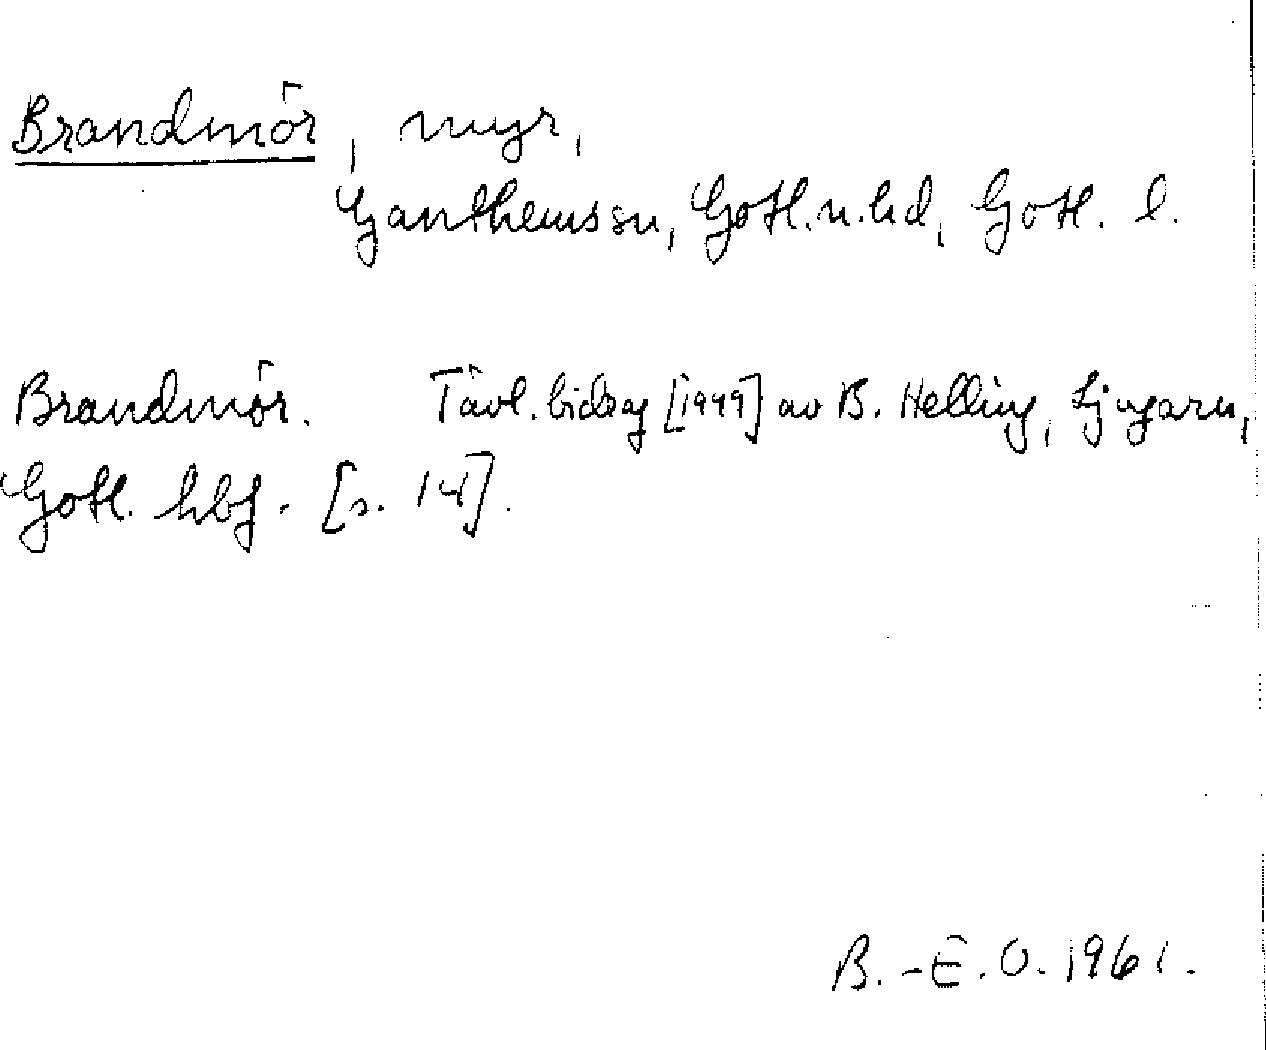 Brandmör, myr,
Ganthems sn, Gotl. n. hd, Gotl. l.
Brandmör. Tävl. bidrag [1949] av B. Helling, Ljugarn,
Gotl. hbf. [s. 14].
B.-E.O. 1961.